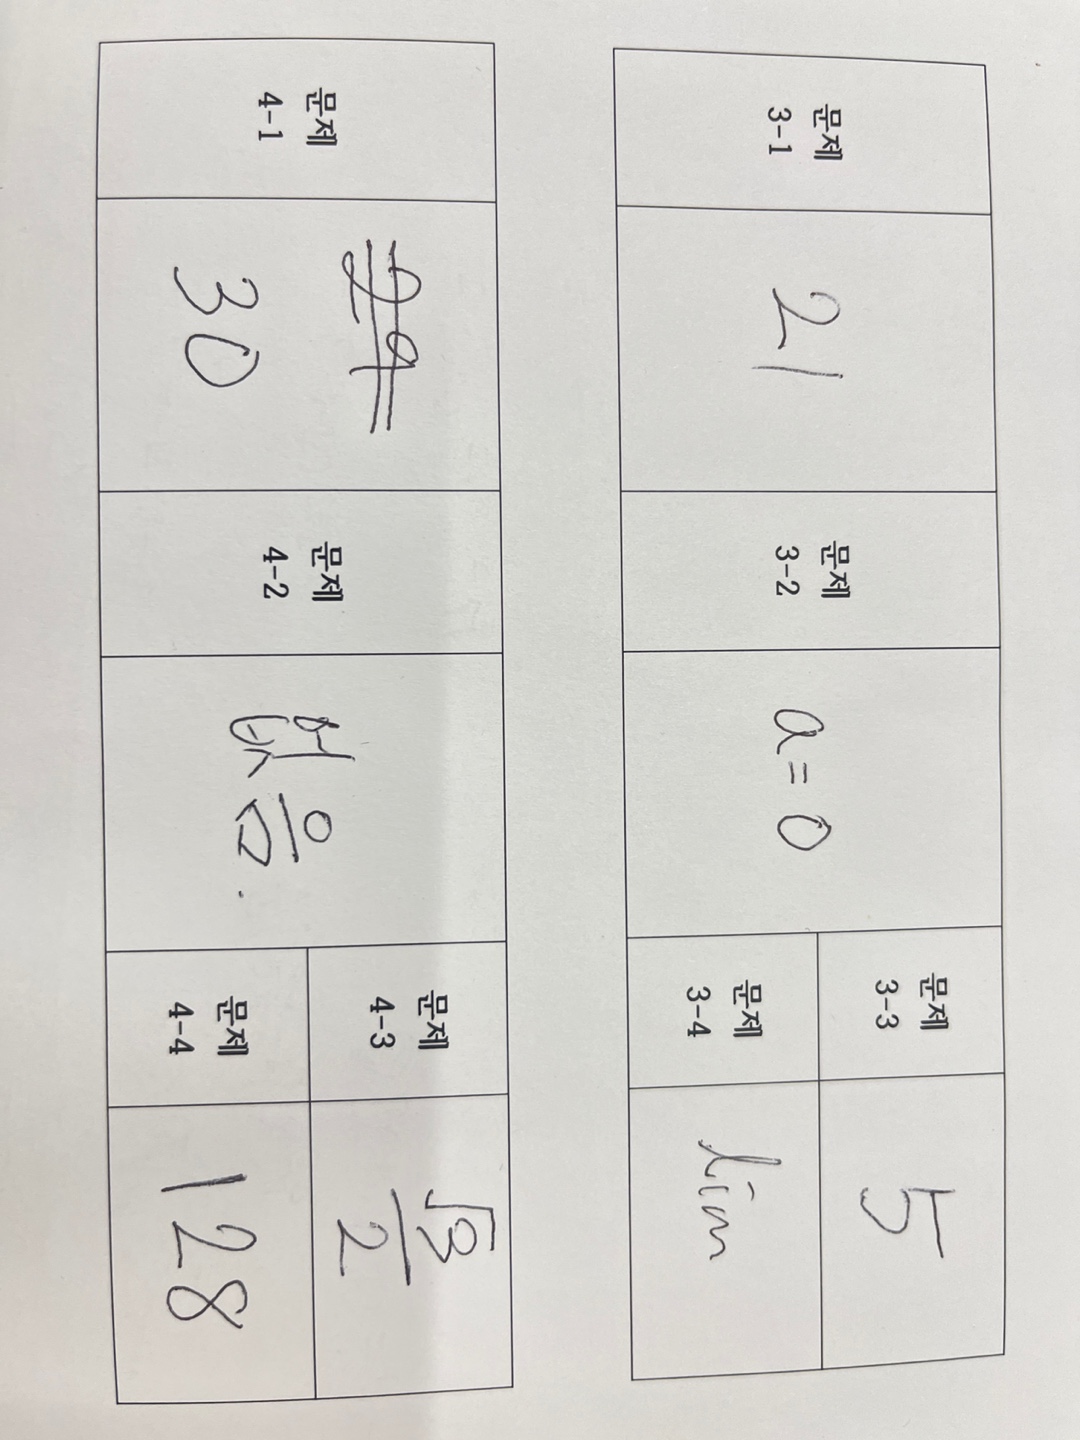 문제
3-1
21
문제
3-2
a = 0
문제
3-3
5
문제
3-4
lim
문제
4-1
29
30
문제
4-2
없음.
문제
4-3
√3
2
문제
4-4
128